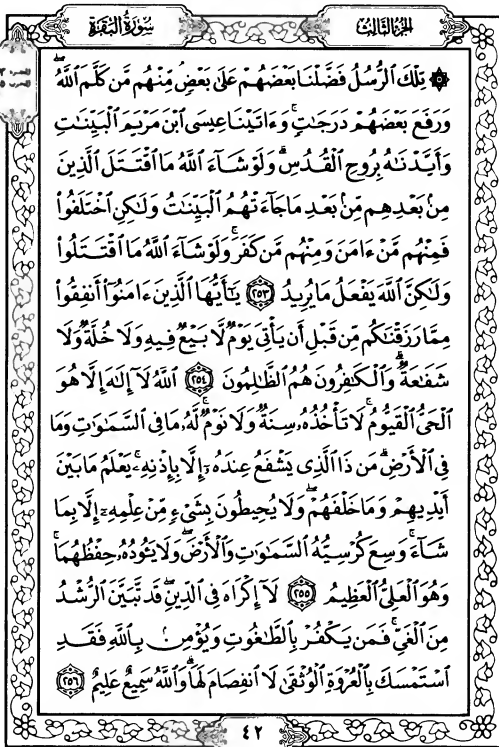 سُورَةُ البَقَرَةِ الجُزءُ الثَّالِثُ
۞ تِلْكَ ٱلرُّسُلُ فَضَّلْنَا بَعْضَهُمْ عَلَىٰ بَعْضٍۘ مِّنْهُم مَّن كَلَّمَ ٱللَّهُۖ
وَرَفَعَ بَعْضَهُمْ دَرَجَٰتٍۚ وَءَاتَيْنَا عِيسَى ٱبْنَ مَرْيَمَ ٱلْبَيِّنَٰتِ
وَأَيَّدْنَٰهُ بِرُوحِ ٱلْقُدُسِۗ وَلَوْ شَآءَ ٱللَّهُ مَا ٱقْتَتَلَ ٱلَّذِينَ
مِنۢ بَعْدِهِم مِّنۢ بَعْدِ مَا جَآءَتْهُمُ ٱلْبَيِّنَٰتُ وَلَٰكِنِ ٱخْتَلَفُوا۟
فَمِنْهُم مَّنْ ءَامَنَ وَمِنْهُم مَّن كَفَرَۚ وَلَوْ شَآءَ ٱللَّهُ مَا ٱقْتَتَلُوا۟
وَلَٰكِنَّ ٱللَّهَ يَفْعَلُ مَا يُرِيدُ ٢٥٣ يَٰٓأَيُّهَا ٱلَّذِينَ ءَامَنُوٓا۟ أَنفِقُوا۟
مِمَّا رَزَقْنَٰكُم مِّن قَبْلِ أَن يَأْتِىَ يَوْمٌ لَّا بَيْعٌ فِيهِ وَلَا خُلَّةٌ وَلَا
شَفَٰعَةٌۗ وَٱلْكَٰفِرُونَ هُمُ ٱلظَّٰلِمُونَ ٢٥٤ ٱللَّهُ لَآ إِلَٰهَ إِلَّا هُوَ
ٱلْحَىُّ ٱلْقَيُّومُۚ لَا تَأْخُذُهُۥ سِنَةٌ وَلَا نَوْمٌۚ لَّهُۥ مَا فِى ٱلسَّمَٰوَٰتِ وَمَا
فِى ٱلْأَرْضِۗ مَن ذَا ٱلَّذِى يَشْفَعُ عِندَهُۥٓ إِلَّا بِإِذْنِهِۦۚ يَعْلَمُ مَا بَيْنَ
أَيْدِيهِمْ وَمَا خَلْفَهُمْۖ وَلَا يُحِيطُونَ بِشَىْءٍ مِّنْ عِلْمِهِۦٓ إِلَّا بِمَا
شَآءَۚ وَسِعَ كُرْسِيُّهُ ٱلسَّمَٰوَٰتِ وَٱلْأَرْضَۖ وَلَا يَـُٔودُهُۥ حِفْظُهُمَاۚ
وَهُوَ ٱلْعَلِىُّ ٱلْعَظِيمُ ٢٥٥ لَآ إِكْرَاهَ فِى ٱلدِّينِۖ قَد تَّبَيَّنَ ٱلرُّشْدُ
مِنَ ٱلْغَىِّۚ فَمَن يَكْفُرْ بِٱلطَّٰغُوتِ وَيُؤْمِنۢ بِٱللَّهِ فَقَدِ
ٱسْتَمْسَكَ بِٱلْعُرْوَةِ ٱلْوُثْقَىٰ لَا ٱنفِصَامَ لَهَاۗ وَٱللَّهُ سَمِيعٌ عَلِيمٌ ٢٥٦
٤٢